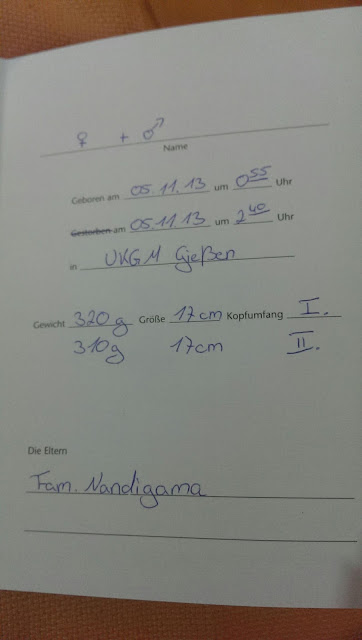 ♀ + ♂
Name
Geboren am 05.11.13 um 0⁵⁵ Uhr
Gestorben am 05.11.13 um 2⁴⁰ Uhr
in UKGM Gießen
Gewicht 320g Größe 17cm Kopfumfang I.
310g 17cm II.
Die Eltern
Fam. Nandigama